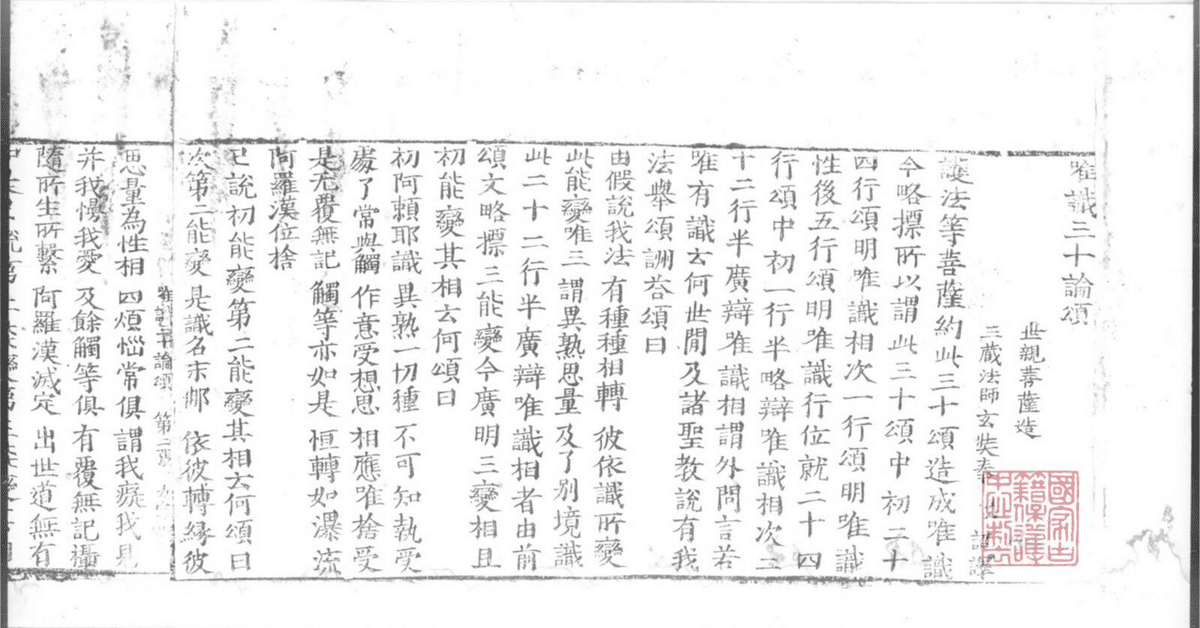 唯識三十論頌
世親菩薩造
三藏法師玄奘奉 詔譯
護法等菩薩約此三十頌造成唯識
今略摽所以謂此三十頌中初二十
四行頌明唯識相次一行頌明唯識
性後五行頌明唯識行位就二十四
行頌中初一行半略辯唯識相次二
十二行半廣辯唯識相謂外問言若
唯有識云何世閒及諸聖教說有我
法舉頌詶荅頌曰
由假說我法 有種種相轉 彼依識所變
此能變唯三 謂異熟思量 及了別境識
此二十二行半廣辯唯識相者由前
頌文略摽三能變今廣明三變相且
初能變其相云何頌曰
初阿頼耶識 異熟一切種 不可知執受
處了常與觸 作意受想思 相應唯捨受
是无覆無記 觸等亦如是 恒轉如瀑流
阿羅漢位捨
已說初能變第二能變其相云何頌曰
次第二能變 是識名末那 依彼轉緣彼
唯識三十論頌 第二張
思量為性相 四煩惱常俱 謂我癡我見
并我慢我愛 及餘觸等俱 有覆無記攝
隨所生所繫 阿羅漢滅定 出世道無有
國家古
籍保護